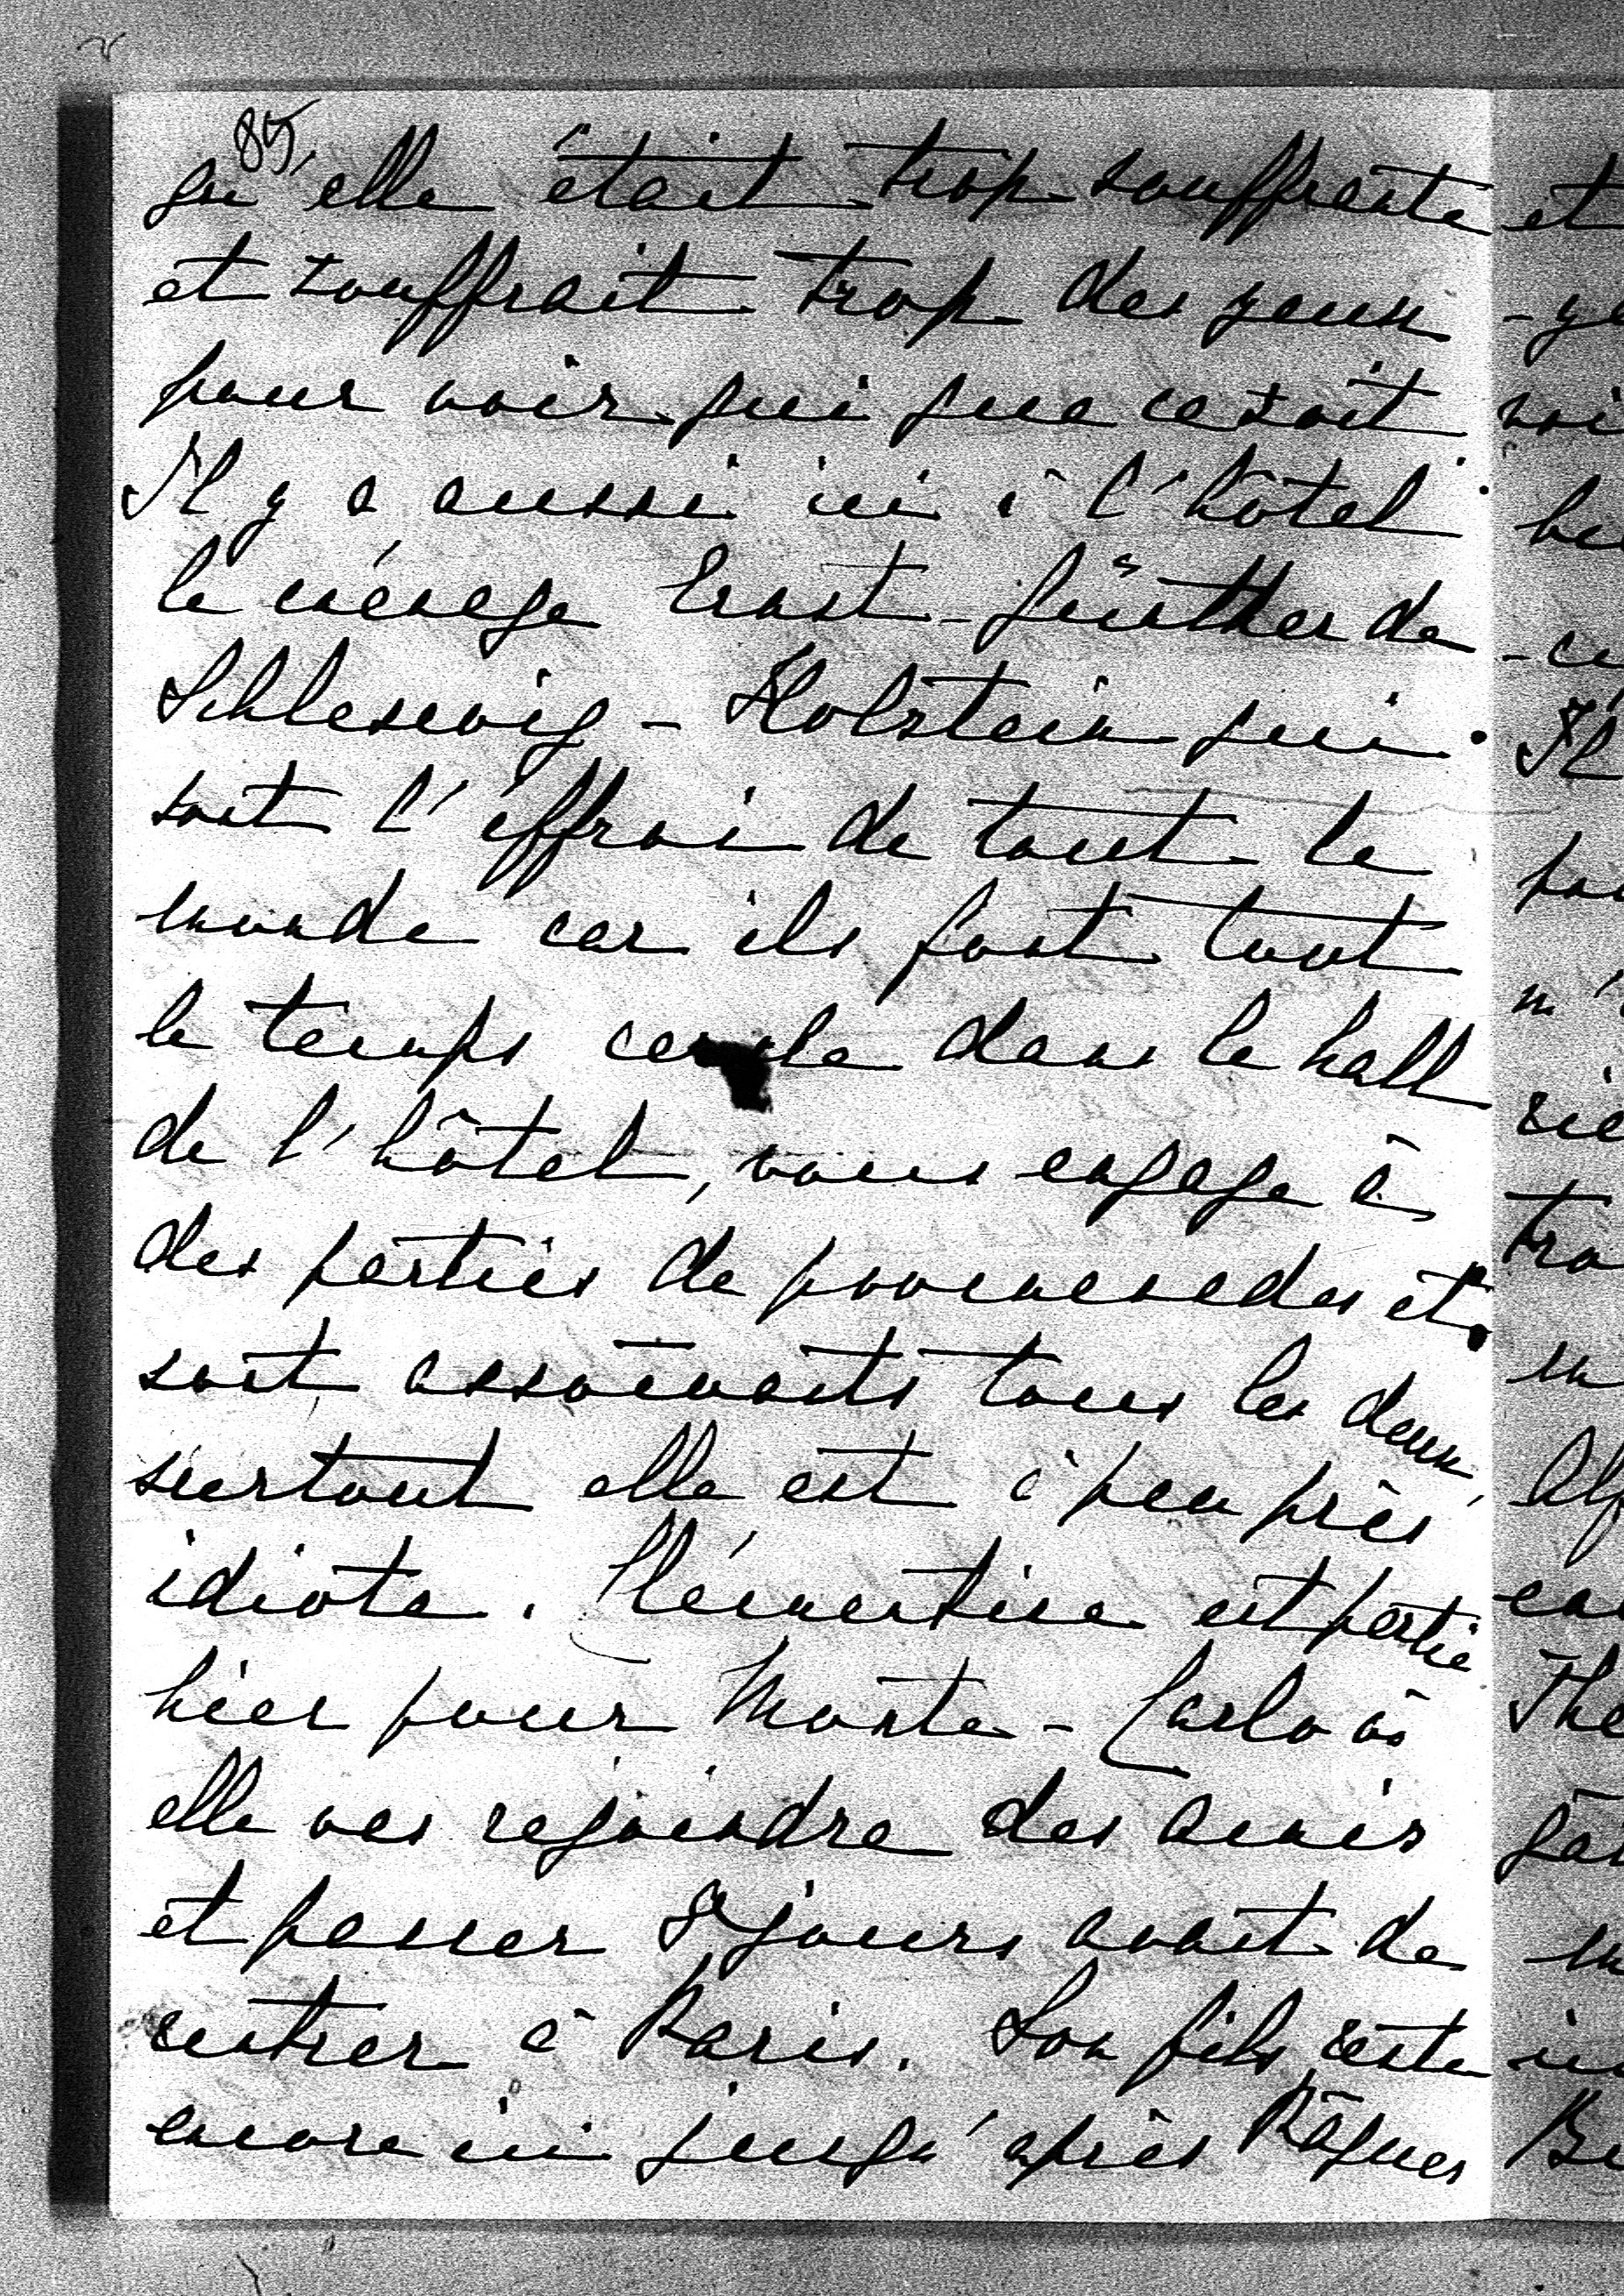 85,
qu'elle était trop souffrante
et souffrait trop des yeux
pour voir qui que ce soit.
Il y a aussi ici à l'hôtel
le ménage Ernst-Günther de
Schleswig-Holstein qui
sont l'éffroi de tout le
monde car ils font tout
le temps cercle dans le hall
de l'hôtel, vous engage à
des parties de promenades et
sont assomants tous les deux,
surtout elle est à peu près
idiote. Clémentine est partie
hier pour Monte-Carlo où
elle vas rejoindre des amis
et passer 8 jours avant de
rentrer à Paris. Son fils reste
encore ici jusqu'après Pâques